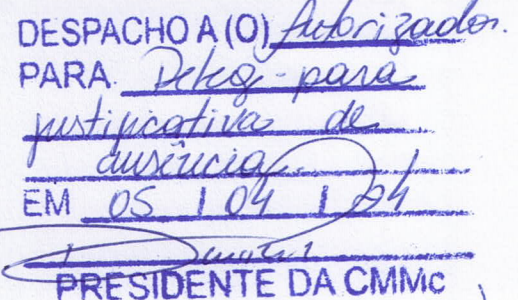 DESPACHO A (O) Autorizador.
PARA para
justificativas de
ausência
EM 05 / 04 / 24
PRESIDENTE DA CMMC